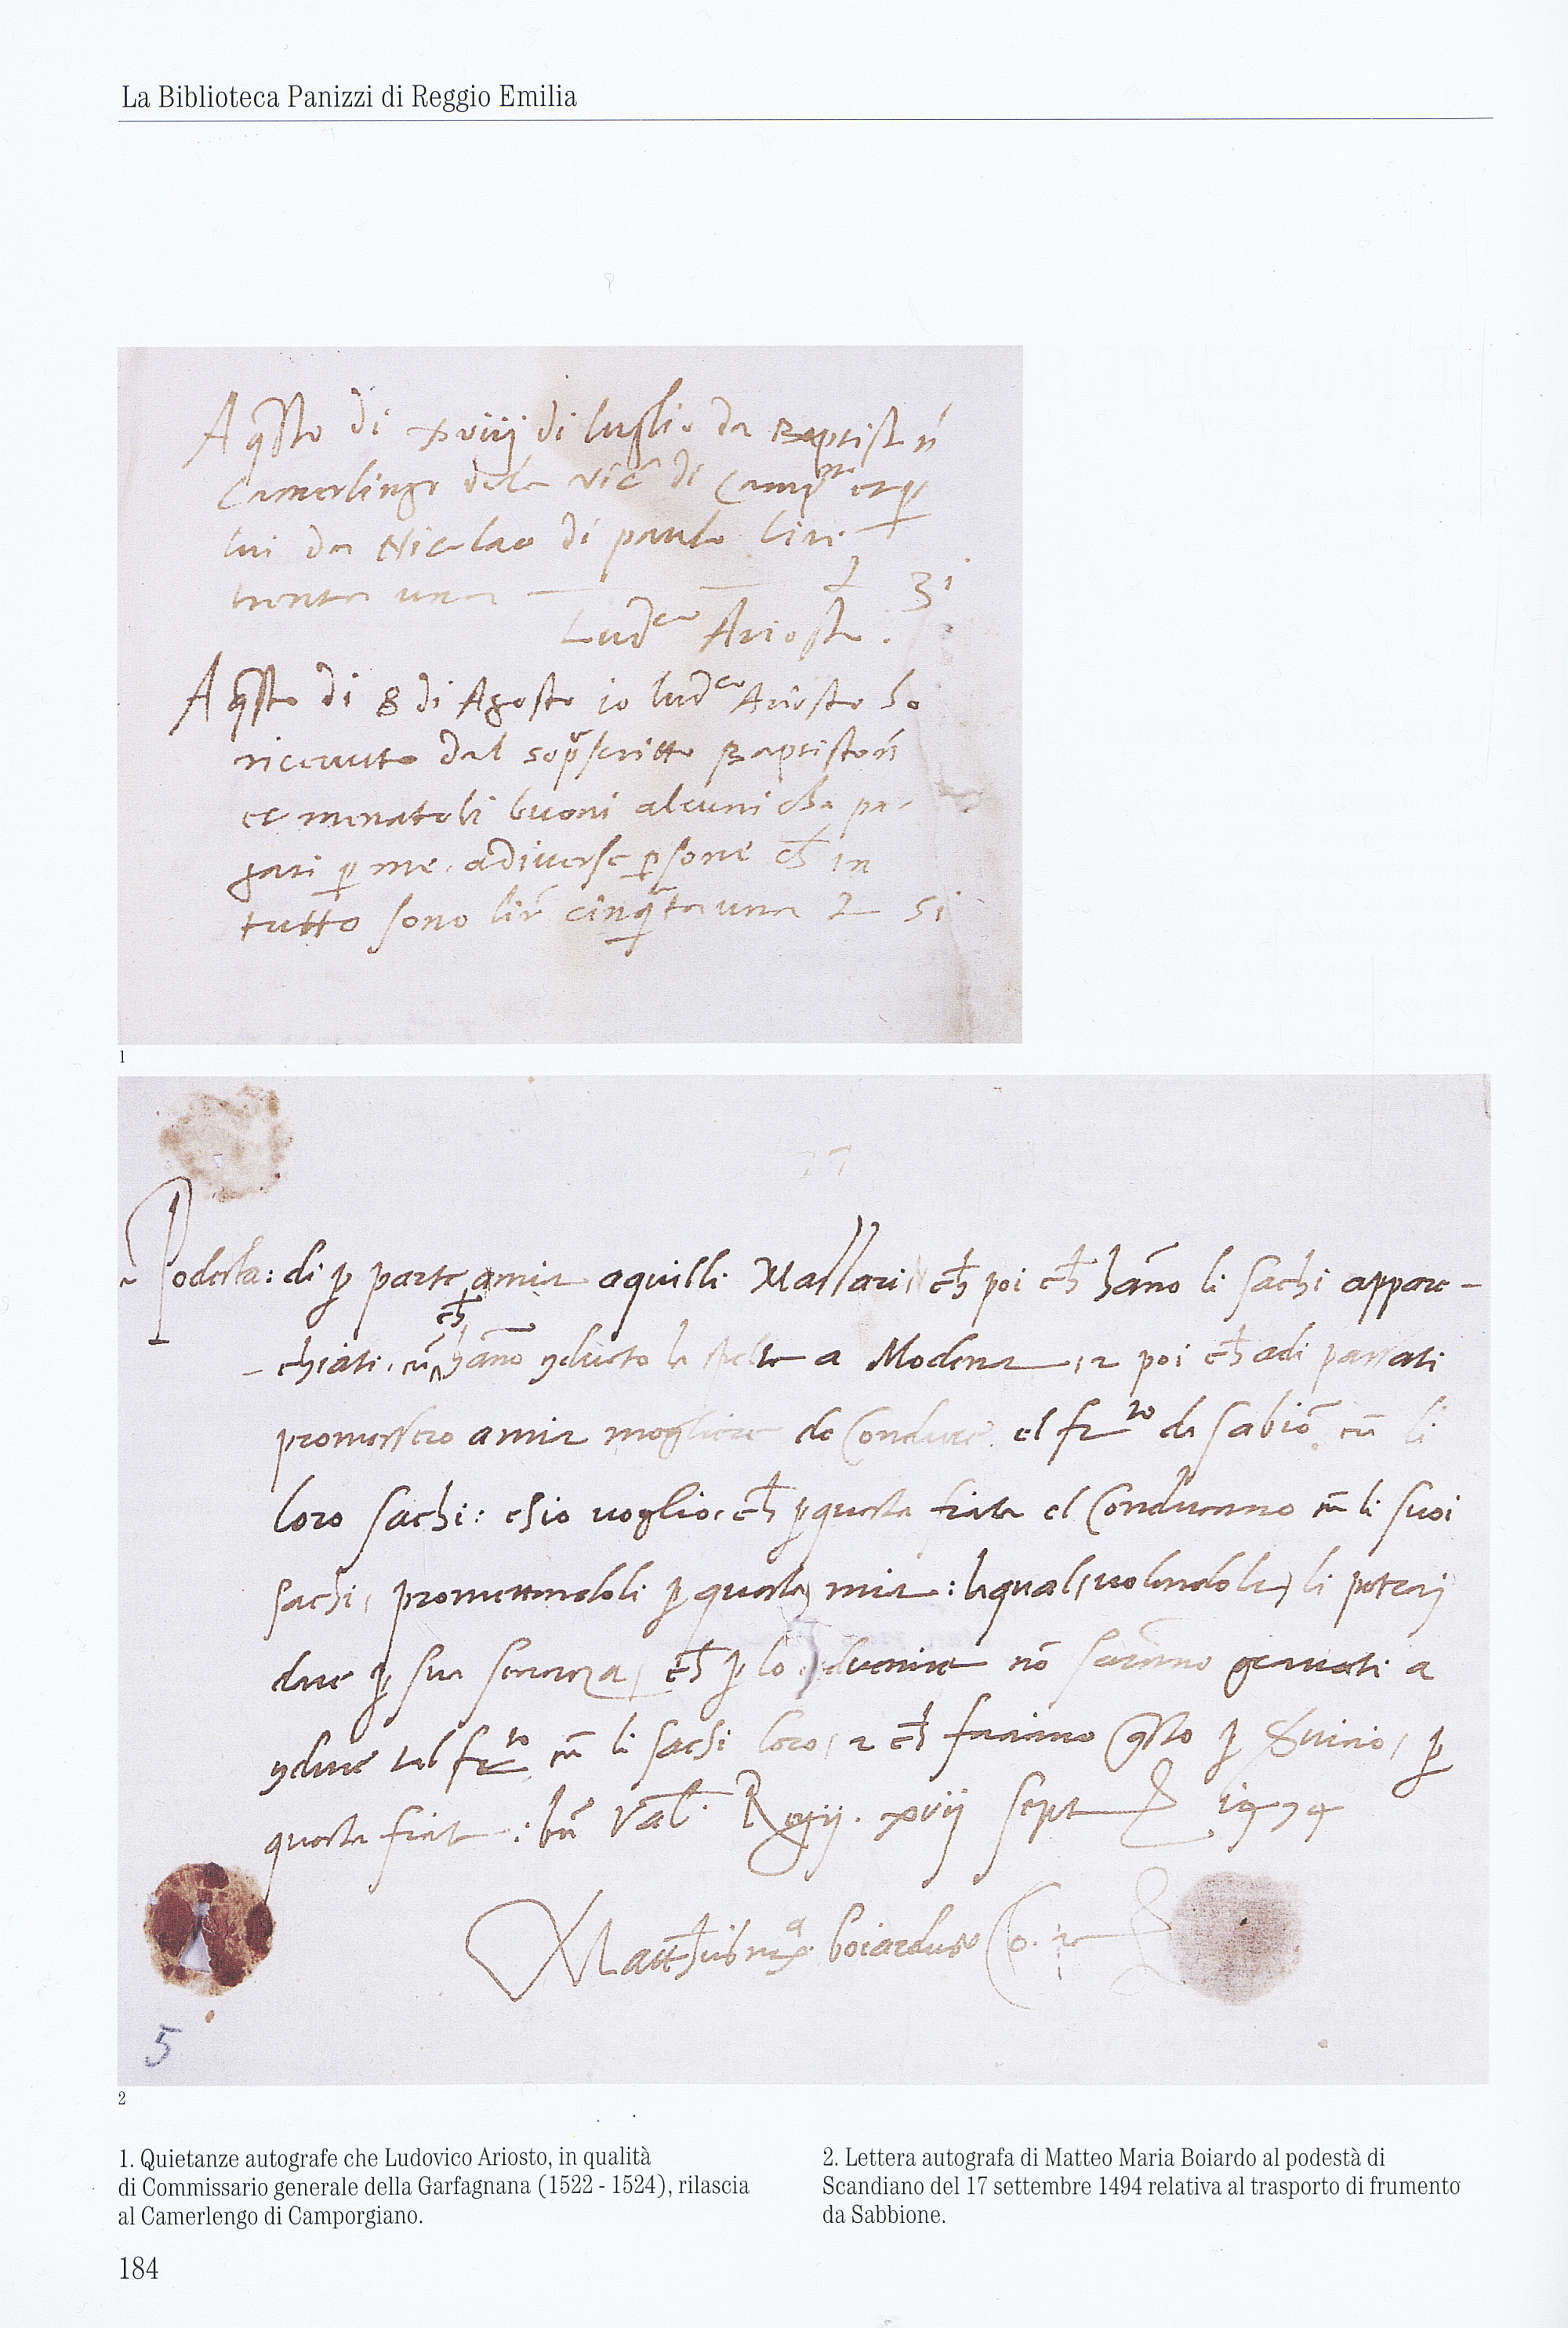 La Biblioteca Panizzi di Reggio Emilia
A q̄sto di xviiij di luglio da Baptistī
Camerlingo dela vic̄ di Camp et p
lui da Nicolao di paulo lire
trenta una £ 31
Ludco Ariosto.
A q̄sto di 8 di Agosto io ludco Ariosto ho
ricevuto dal sop̄scritto Baptistoñ
et menatoli buoni alcuni cha pa-
gati p me adiverse psone ch̄ in
tutto sono lir̄ cinq̄ta una £ 51
1
Podesta: di p parte a mia a quilli Massari ch̄ poi ch̄ hāno li sachi appare-
chiati, cū ch̄ hāno 9ducto la a Modena, 2 poi ch̄ adi passati
promessero a mia mogliere de Condure el frto da Sabiō cū li
loro sachi: voglio ch̄ p questa fiata el Conducano cū li suoi
sachi, promettendoli p mia: la qual volendola li
dare p sua ch̄ p lo advenire nō sarāno gravati a
9dure tal frto cū li sachi loro, 2 ch̄ faciano q̄sto p p
questa fiata: bñ Val. Regij. xvij sept 1494
Mattheus mͣ boiardus Co.
5
2
1. Quietanze autografe che Ludovico Ariosto, in qualità
di Commissario generale della Garfagnana (1522 - 1524), rilascia
al Camerlengo di Camporgiano.
2. Lettera autografa di Matteo Maria Boiardo al podestà di
Scandiano del 17 settembre 1494 relativa al trasporto di frumento
da Sabbione.
184